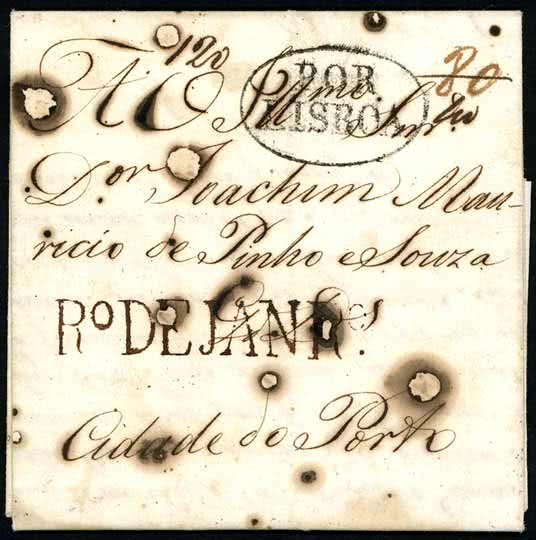 120
POR
LISBOA
80
Ao Illmo. Snr.
Dor. Joachim Mau-
ricio de Pinho e Souza
Ro DE JANRo.
Cidade do Porto